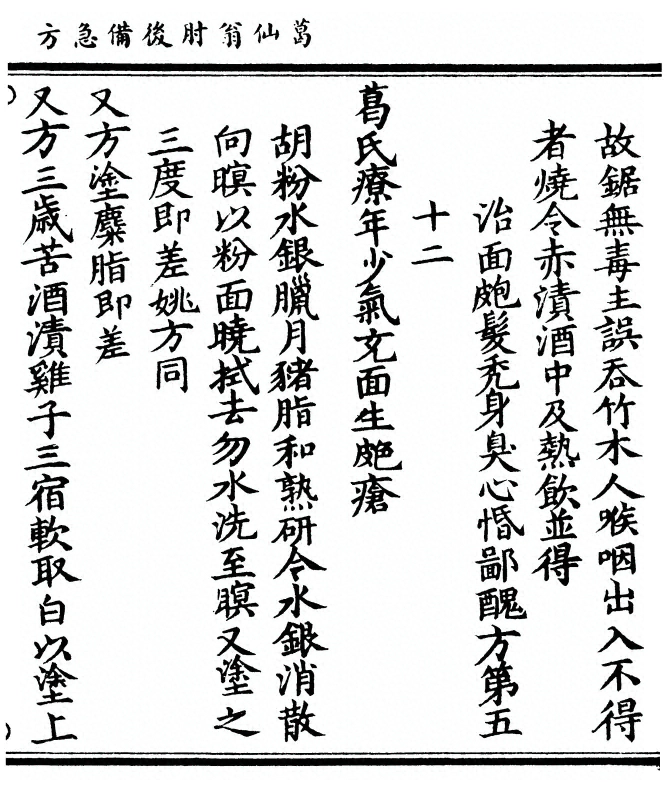 葛仙翁肘後備急方
故鋸無毒主誤吞竹木人喉咽出入不得
者燒令赤漬酒中及熱飲並得
治面皰髮禿身臭心惛鄙醜方第五
十二
葛氏療年少氣充面生皰瘡
胡粉水銀臘月猪脂和熟研令水銀消散
向暝以粉面曉拭去勿水洗至暝又塗之
三度即差姚方同
又方塗麋脂即差
又方三歲苦酒漬雞子三宿軟取白以塗上